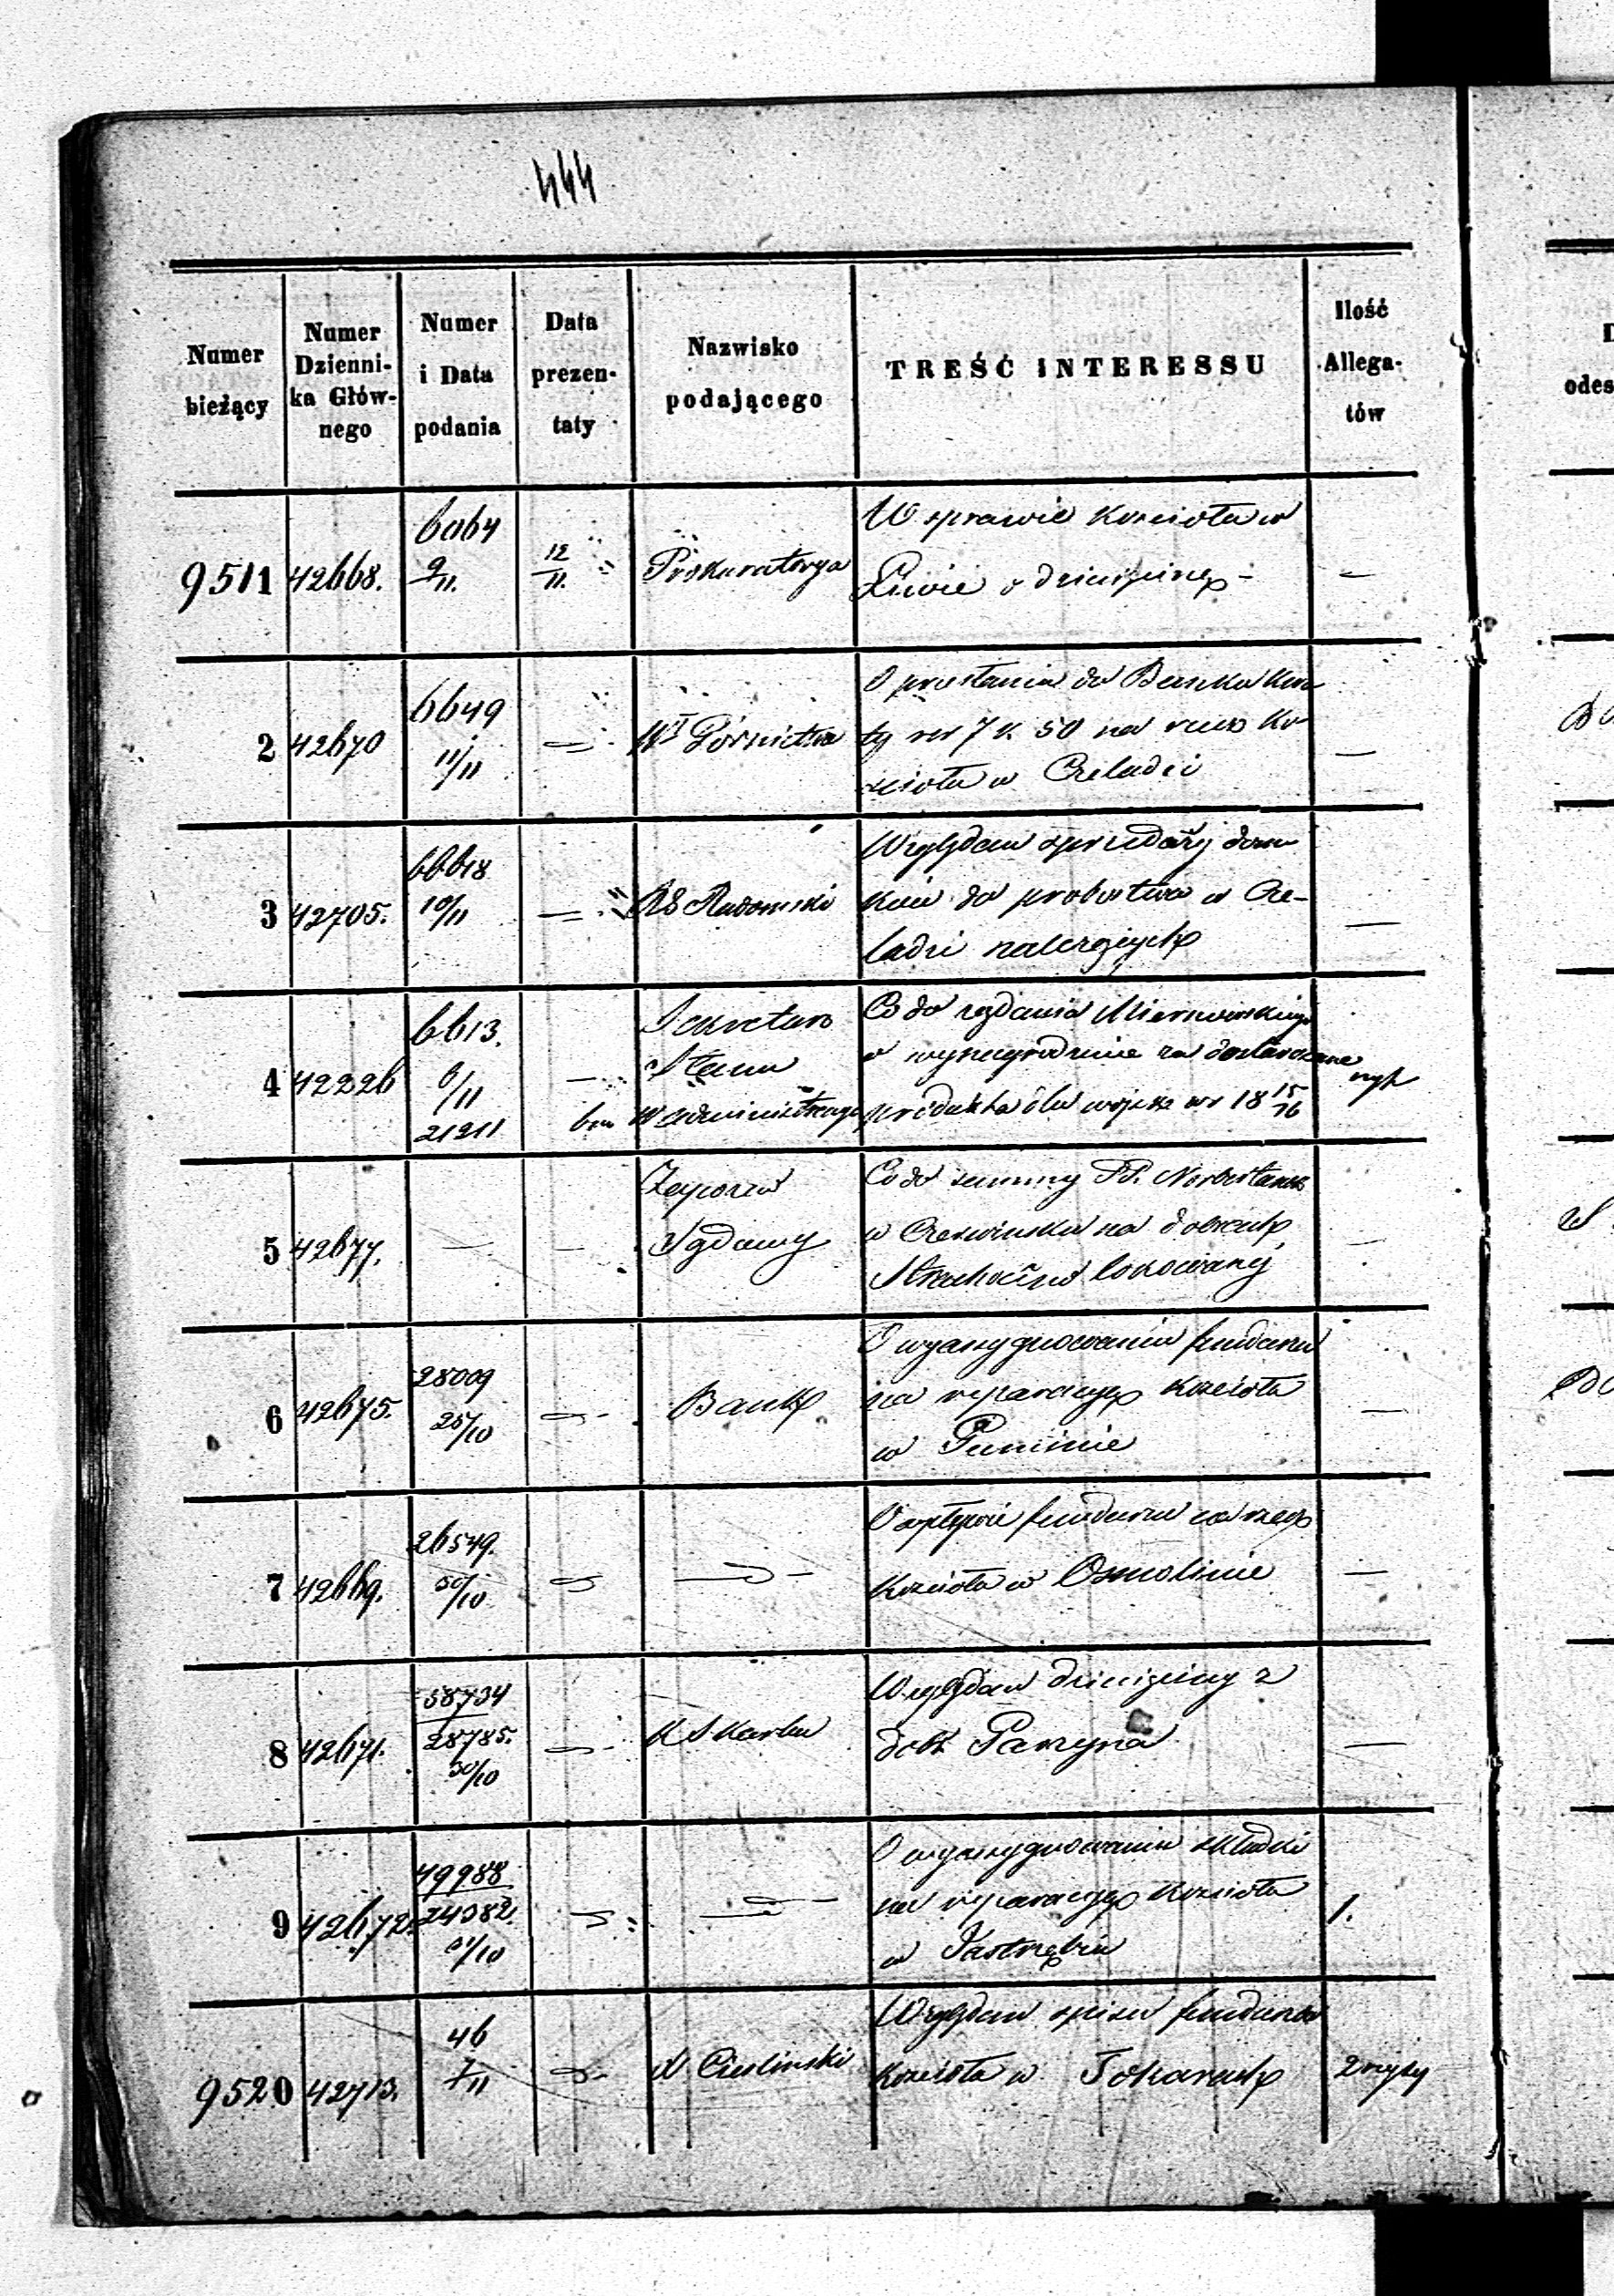 444
Numer bieżący
Numer Dzienni-ka Głów-nego
Numer i Data podania
Data prezen-taty
Nazwisko podającego
TREŚĆ INTERESSU
Ilość Allega-tów
9511 42668. 6064 9/11. 12/11. Prokuratorya
W sprawie Kościoła w
o dziesięcinę –
2 42670 6649 11/11 Wł Górnictwa
O przesłaniu do Banku kwo
ty rsr 7 k. 50 na rzecz Ko
ścioła w Czeladzi
3 42705. 6618 10/11 Radomski
Względem sprzedaży dom
ków do probostwa w Cze-
ladzi należących
4 42226 6613. 6/11 21211
Sekretarz
Stanu
W administracyi
Co do żądania
o wynagrodzenie za dostarczane
produkta dla wojska w r 18 15/16
5 42677.
Zaporza
Sądowy
Co do summy PP. Norbertanek
w Czerwińsku na dobrach
lokowanej
6 42675. 28009 25/10 Bank
O wyassygnowaniu funduszu
na reparacyę Kościoła
w
7 42669. 26549. 30/10
O wpływie funduszu na rzecz
Kościoła w Osmolinie
8 42671. 58734 28785. 30/10 K S Karbu
Względem dziesięciny z
dóbr Parzyna
9 42672. 49988 24382. 31/10
O wyassygnowaniu składki
na reparacyę Kościoła
w Jastrzębiu
1.
9520 42713. 46 7/11 X Ciesliński
Względem spisu funduszu
Kościoła w Tokarach